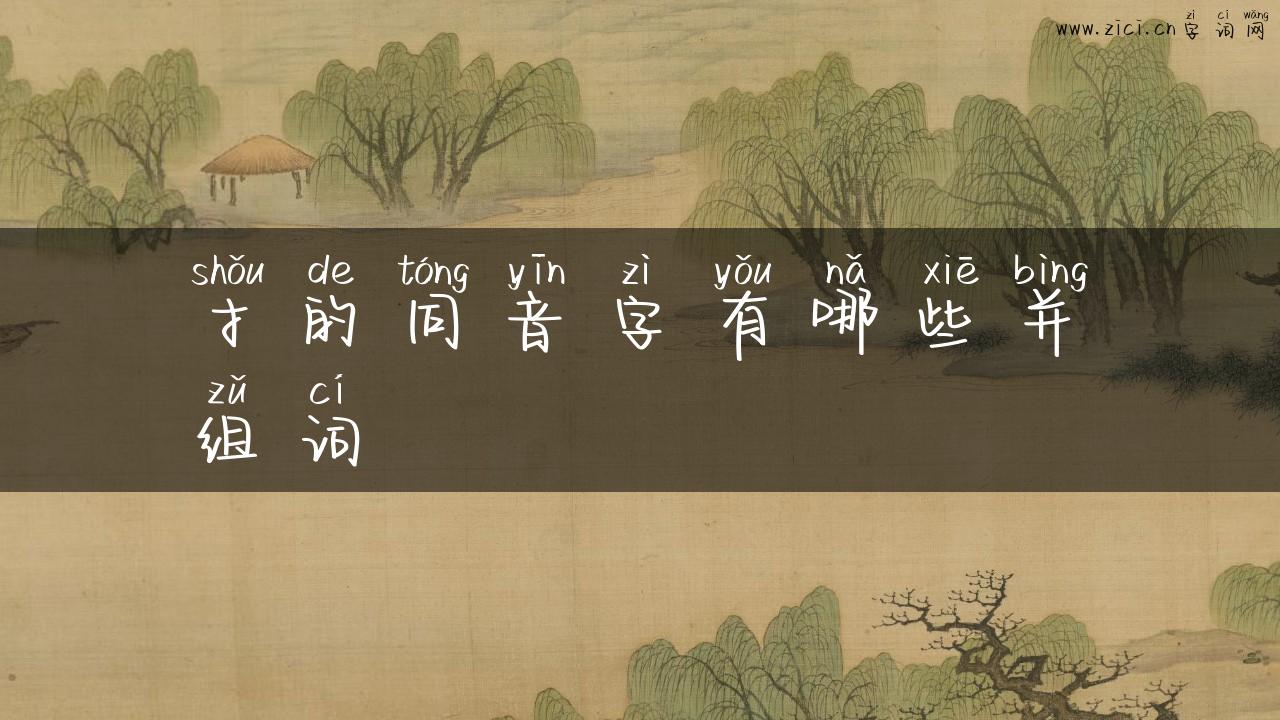 zì cí wǎng
www.zici.cn 字 词 网
shǒu de tóng yīn zì yǒu nǎ xiē bìng
扌 的 同 音 字 有 哪 些 并
zǔ cí
组 词